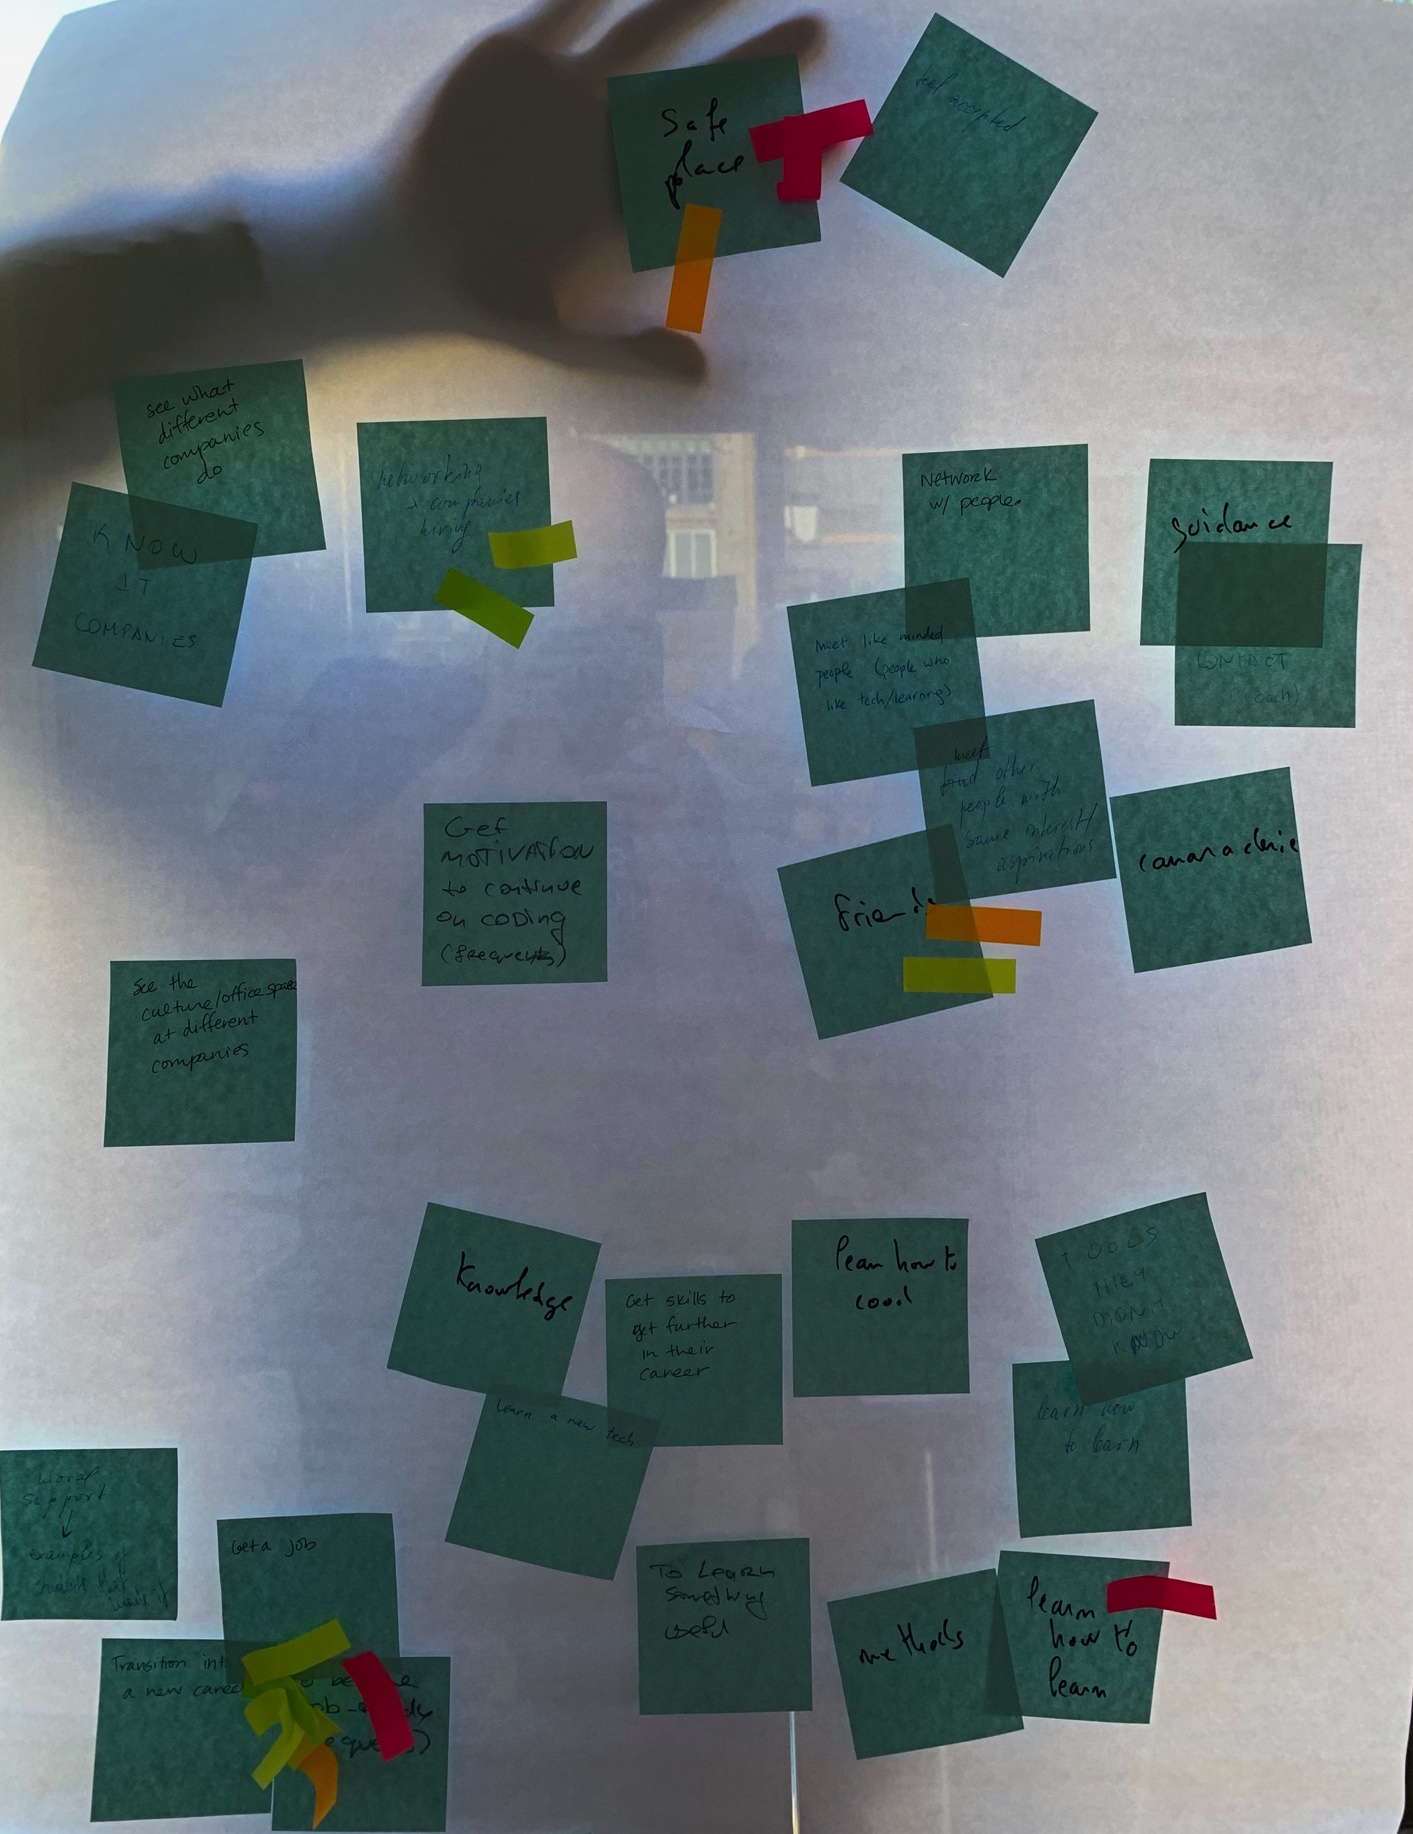 Safe
place
feel accepted
see what
different
companies
do
KNOW
IT
COMPANIES
networking
+ companies
hiring
Network
w/ people.
guidance
CONTACT
(each)
Meet like minded
people (people who
like tech/learning)
meet
other
people with
same interest/
aspirations
friends
Get
MOTIVATION
to continue
on CODING
See the
culture/office space
at different
companies
Knowledge
Get skills to
get further
in their
career
learn how to
TOOLS
THEY
DON'T
KNOW
learn a new tech
learn how
to learn
moral
support
↓
examples of
Get a job
Transition int
a new career
To Learn
something
useful
methods
learn
how to
learn